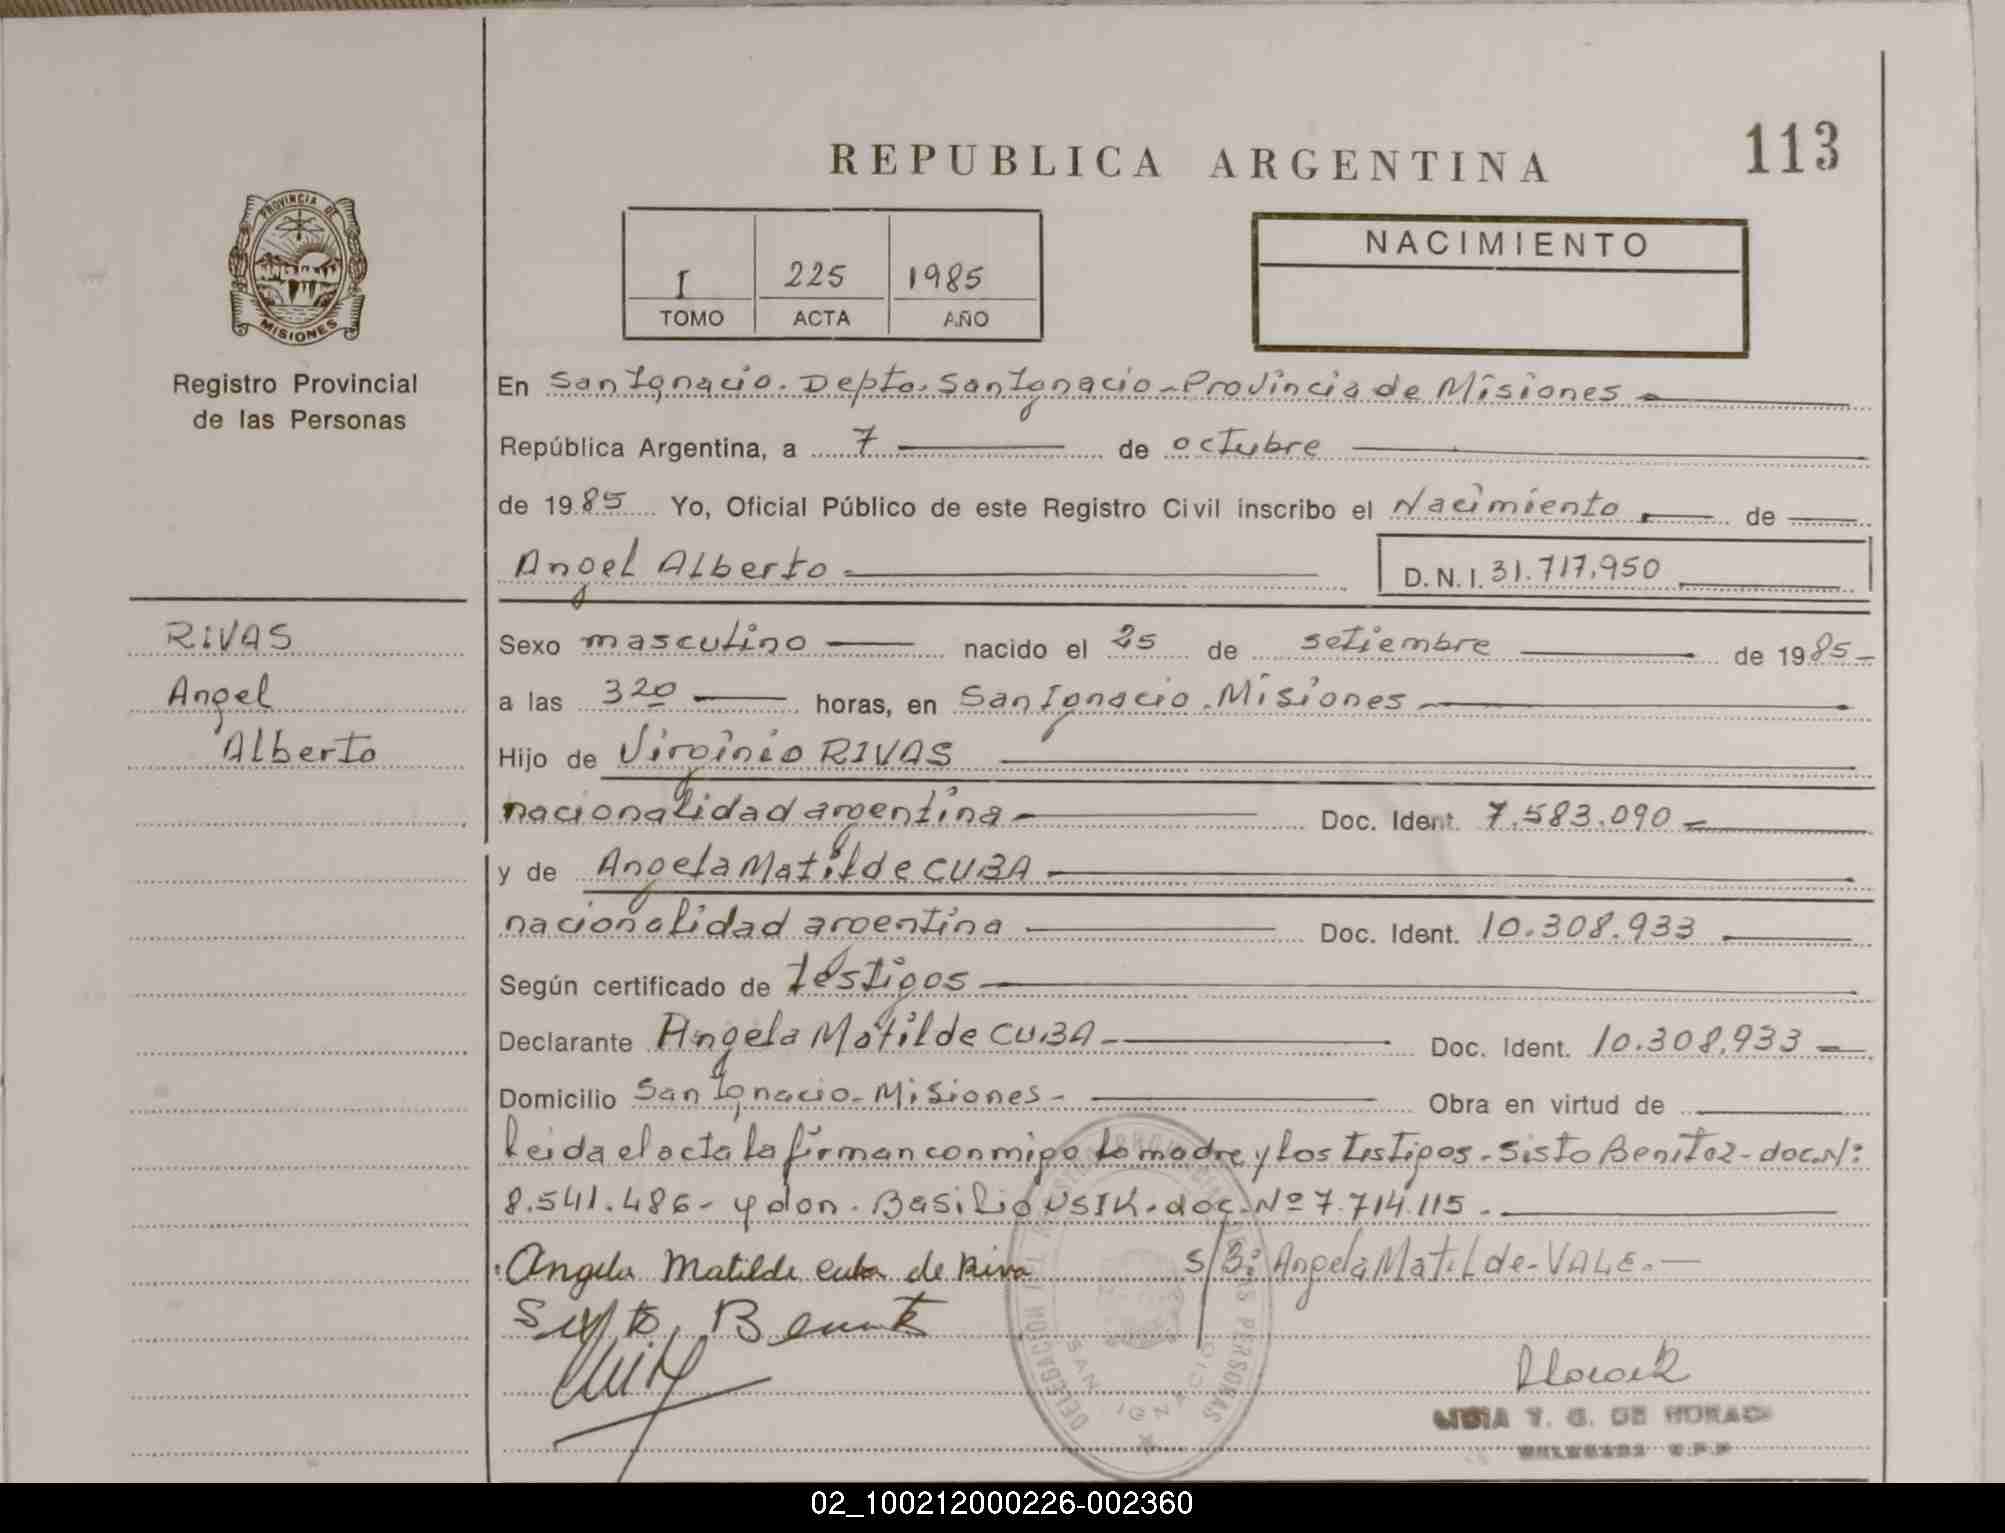 113
REPUBLICA ARGENTINA
PROVINCIA DE
MISIONES
Registro Provincial
de las Personas
I 225 1985
TOMO ACTA AÑO
NACIMIENTO
En San Ignacio. Depto. San Ignacio - Provincia de Misiones
República Argentina, a 7 de octubre
de 1985 Yo, Oficial Público de este Registro Civil inscribo el Nacimiento de
Angel Alberto D.N.I. 31.717.950
RIVAS
Angel
Alberto
Sexo masculino nacido el 25 de setiembre de 1985
a las 3 20 horas, en San Ignacio. Misiones
Hijo de Virginio RIVAS
nacionalidad argentina Doc. Ident. 7.583.090
y de Angela Matilde CUBA
nacionalidad argentina Doc. Ident. 10.308.933
Según certificado de testigos
Declarante Angela Matilde CUBA Doc. Ident. 10.308.933
Domicilio San Ignacio - Misiones - Obra en virtud de
Leida el acta la firman conmigo la madre y los testigos - Sisto Benitez - doc. Nº:
8.541.486 - y don. Basilio USIK. doc. Nº 7.714.115.
Angela Matilde Cuba de Riva S/B: Angela Matilde - VALE. -
Sixto Benitez
DELEGACION DEL REGISTRO PROVINCIAL DE LAS PERSONAS
SAN IGNACIO
02_100212000226-002360